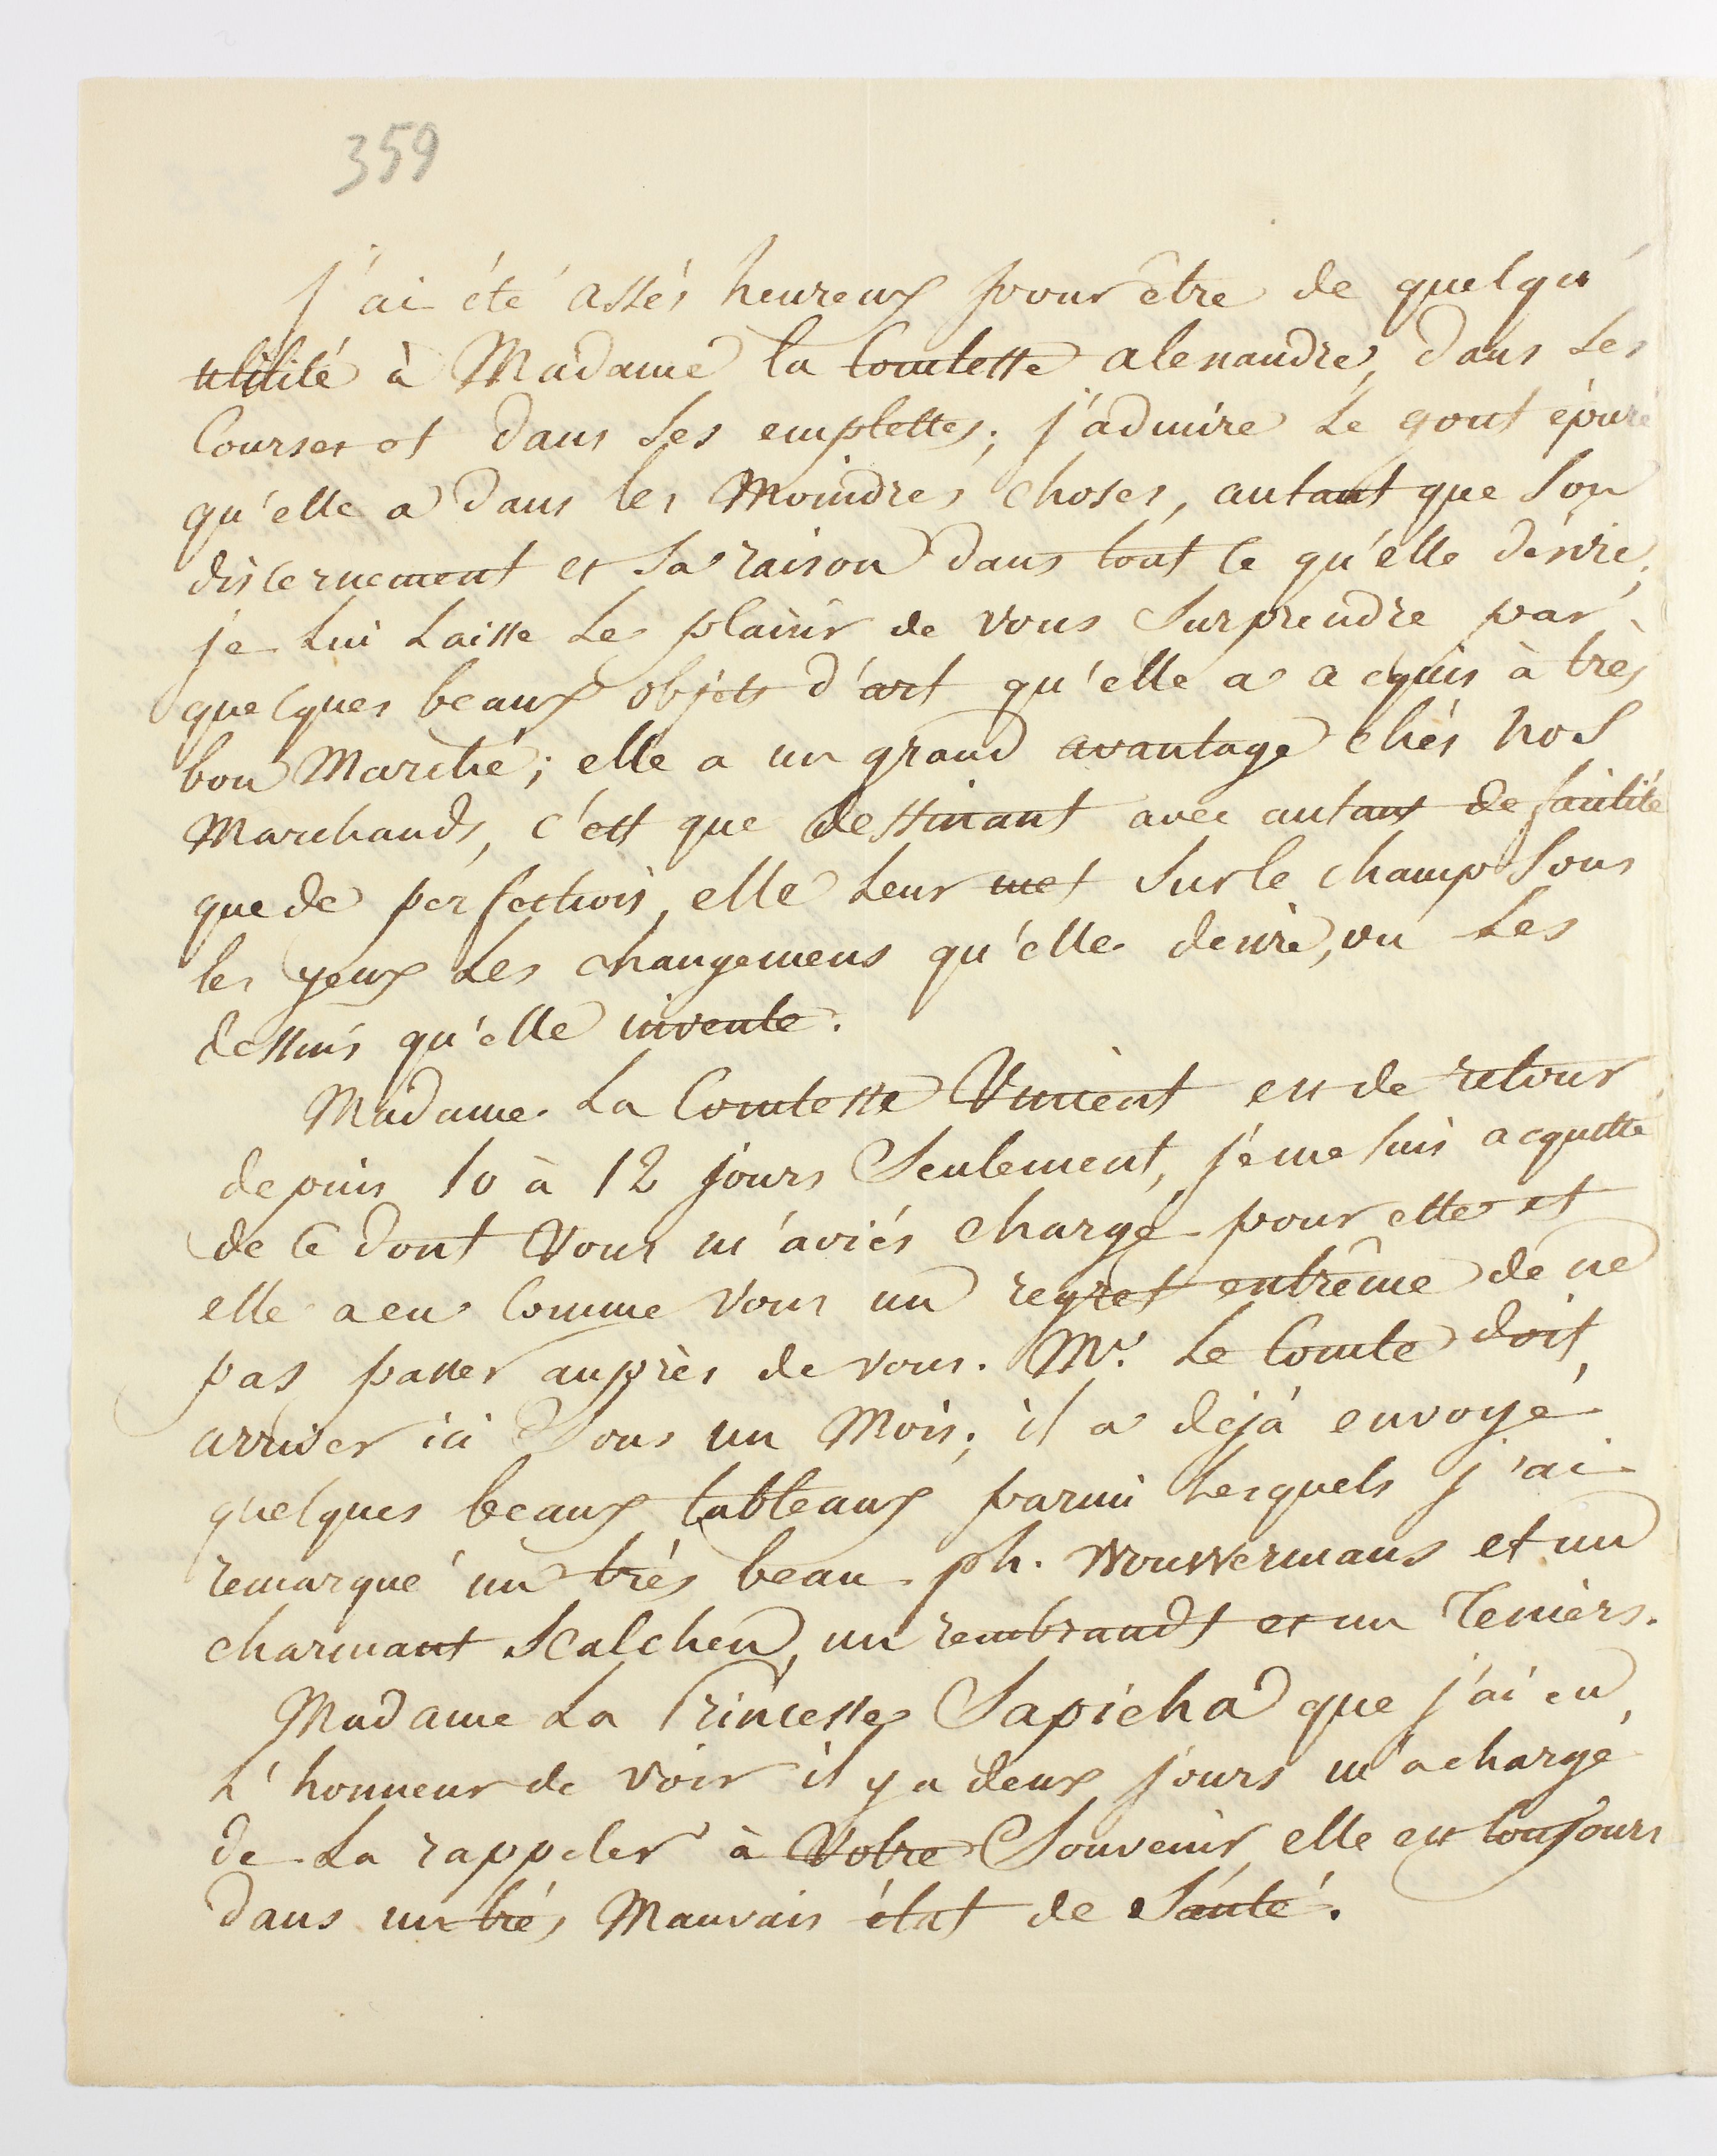 359
J'ai été assés heureux pour être de quelqu'
utilité à Madame la Comtesse alexandre, dans ses
Courses et dans ses emplettes; j'admire Le gout épuré
qu'elle a dans les Moindres choses, autant que Son
discernement et Sa raison dans tout ce qu'elle désire;
je Lui Laisse Le plaisir de vous Surprendre par
quelques beaux objets d'art qu'elle a acquis à très
bon Marché; elle a un grand avantage chés nos
Marchands, c'est que dessinant avec autant de facilité
que de perfection, elle Leur met Sur le champ Sous
les yeux Les changemens qu'elle desire, ou Les
dessins qu'elle invente.
Madame La Comtesse Vincent est de retour
depuis 10 à 12 jours Seulement, je me suis acquitté
de ce dont Vous m'aviés chargé pour elle et
elle a eu Comme Vous un regret extrême de ne
pas passer auprès de vous. Mr. Le Comte doit
arriver ici Sous un Mois; il a déjà envoyé
quelques beaux tableaux parmi Lesquels j'ai
remarqué un très beau ph. Wouwermans et un
charmant Scalchen, un rembrandt et un Teniers.
Madame La Princesse Sapieha que j'ai eu
L'honneur de voir il y a deux jours m'a chargé
de La rappeler à Votre Souvenir, elle est toujours
dans un très Mauvais état de Santé.